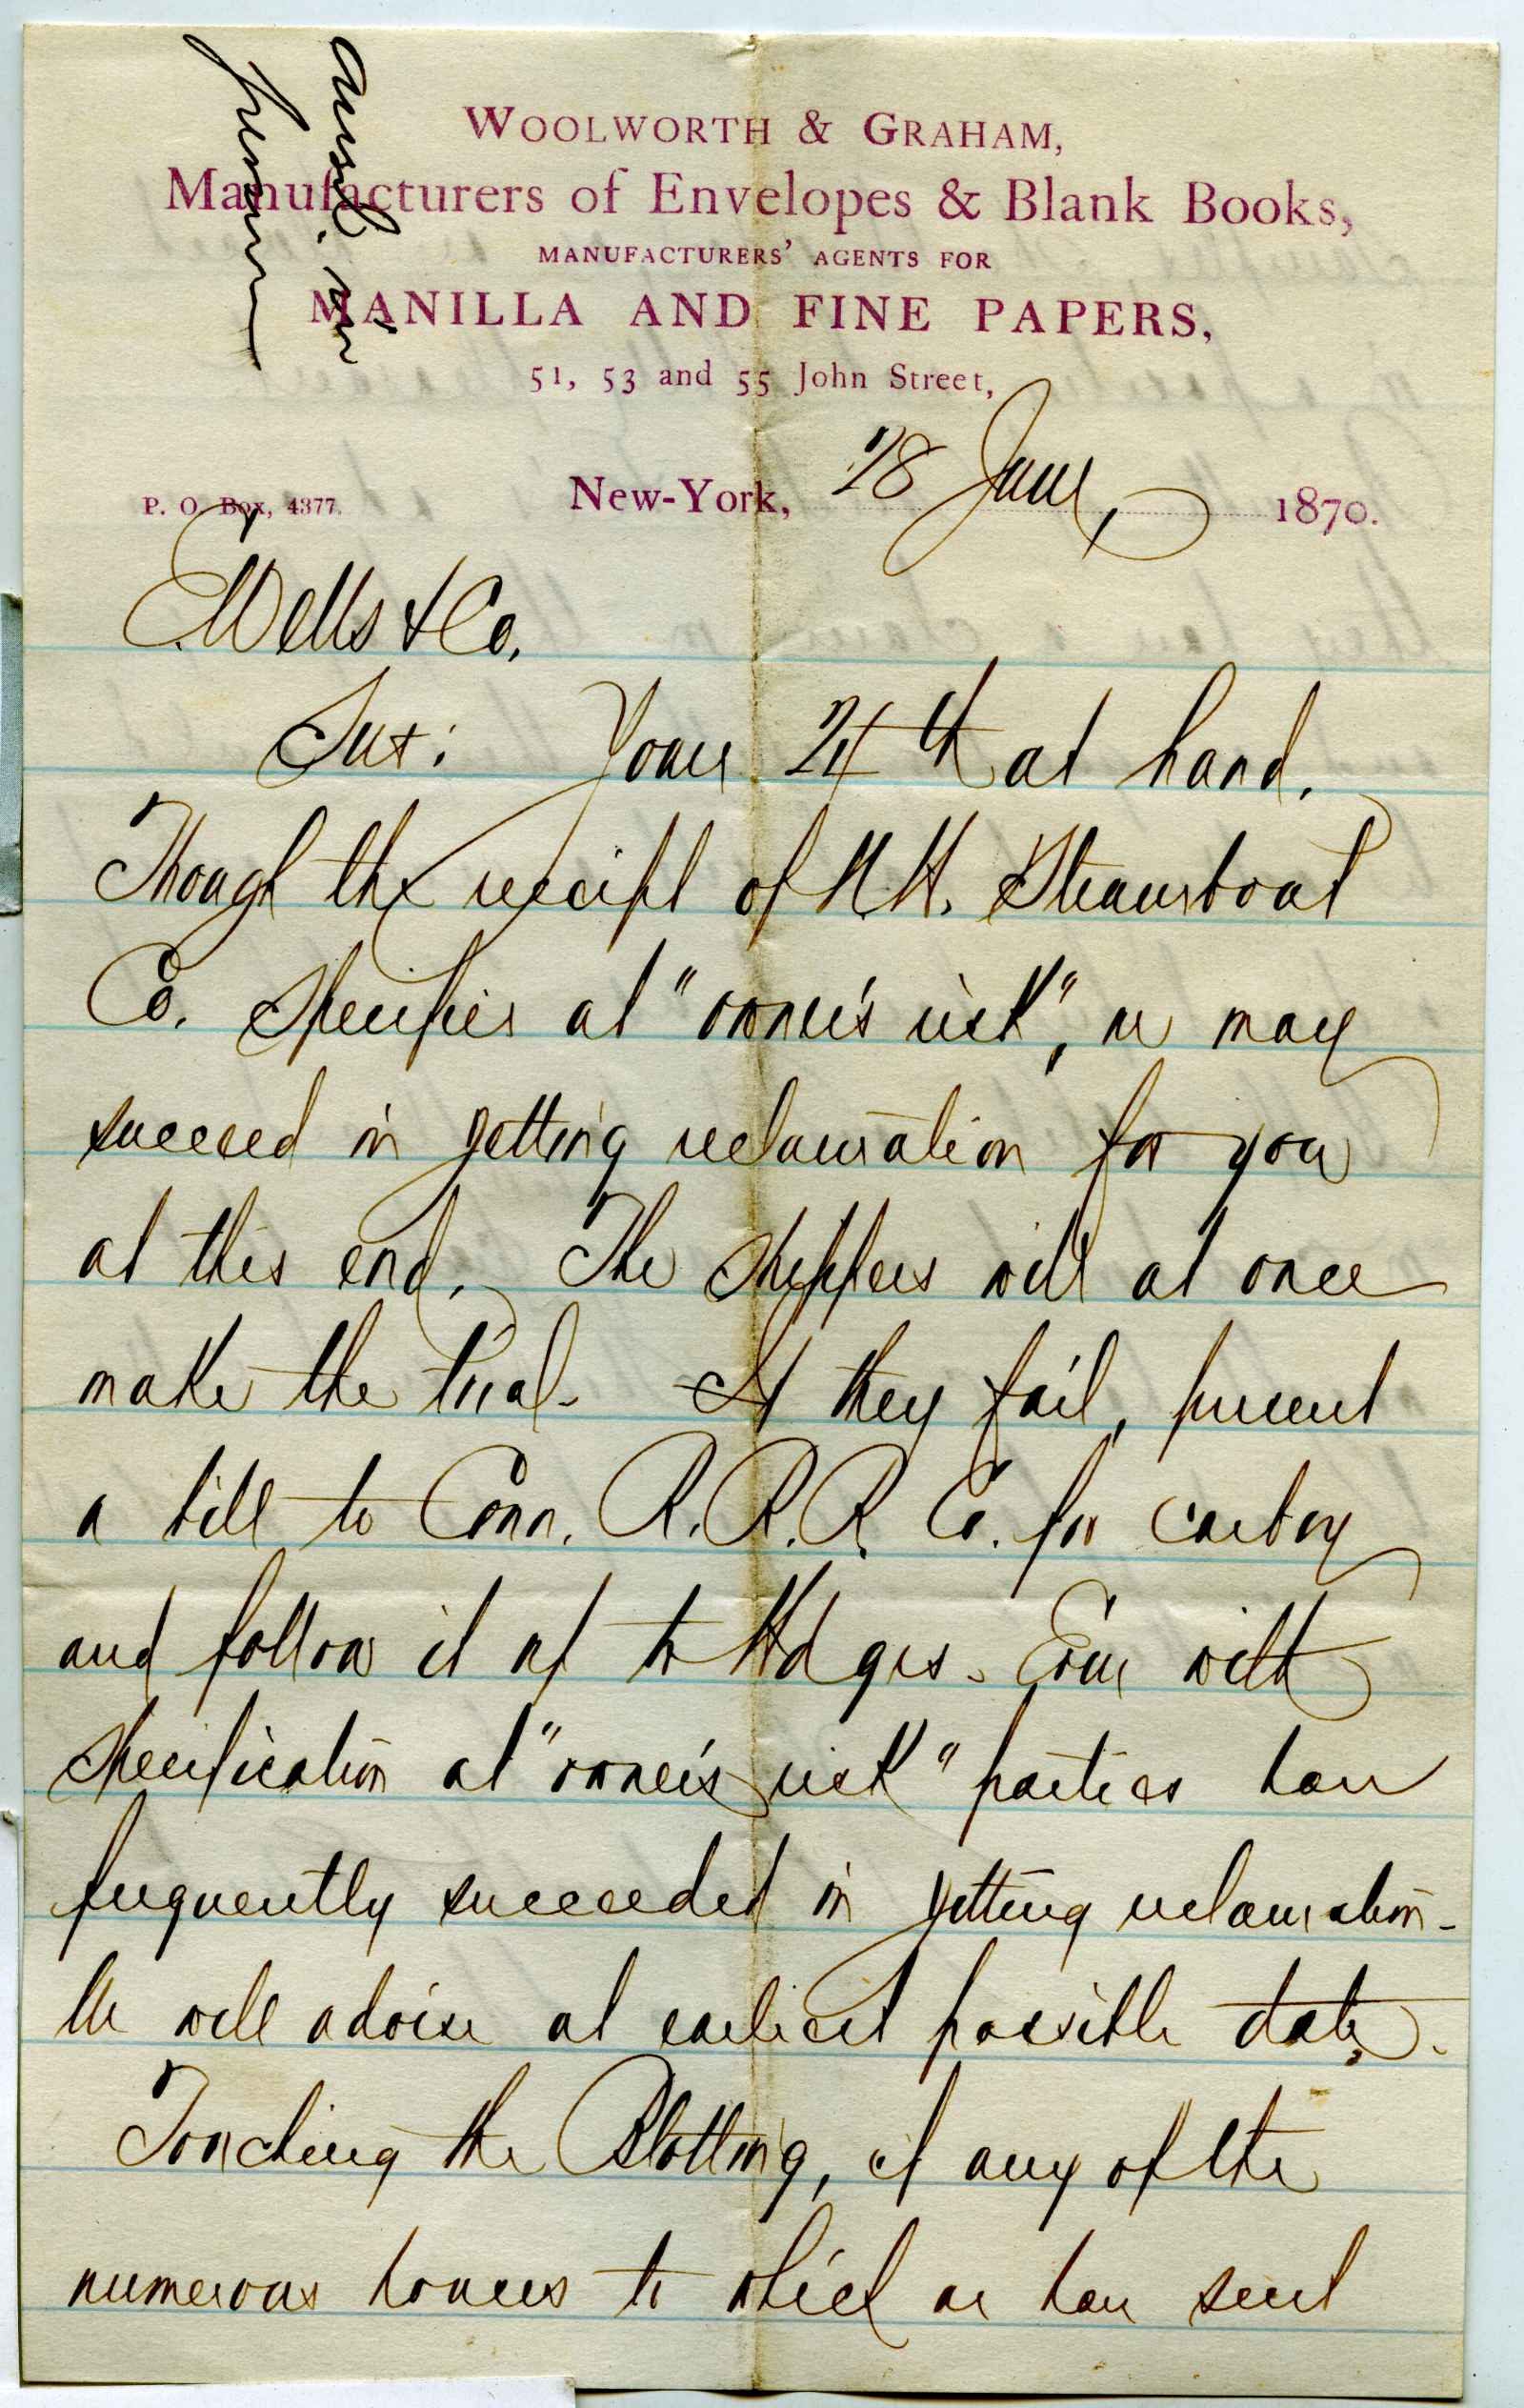 Ansd. in
WOOLWORTH & GRAHAM,
Manufacturers of Envelopes & Blank Books,
MANUFACTURERS' AGENTS FOR
MANILLA AND FINE PAPERS,
51, 53 and 55 John Street,
P. O. Box, 4377.
New-York, 28 June, 1870.
C. Wells & Co.
Yours 24th at hand.
Though the receipt of N.H. Steamboat
Co. specifies at "owner's risk", we may
succeed in getting reclamation for you
at this end. The shippers will at once
make the trial. If they fail, present
a bill to Conn. R.R.R. Co. for carboy
and follow it up to Hd qrs. Even with
specification at "owner's risk" parties have
frequently succeeded in getting reclamation.
We will advise at earliest possible date.
Touching the Blotting, if any of the
numerous houses to which we have sent